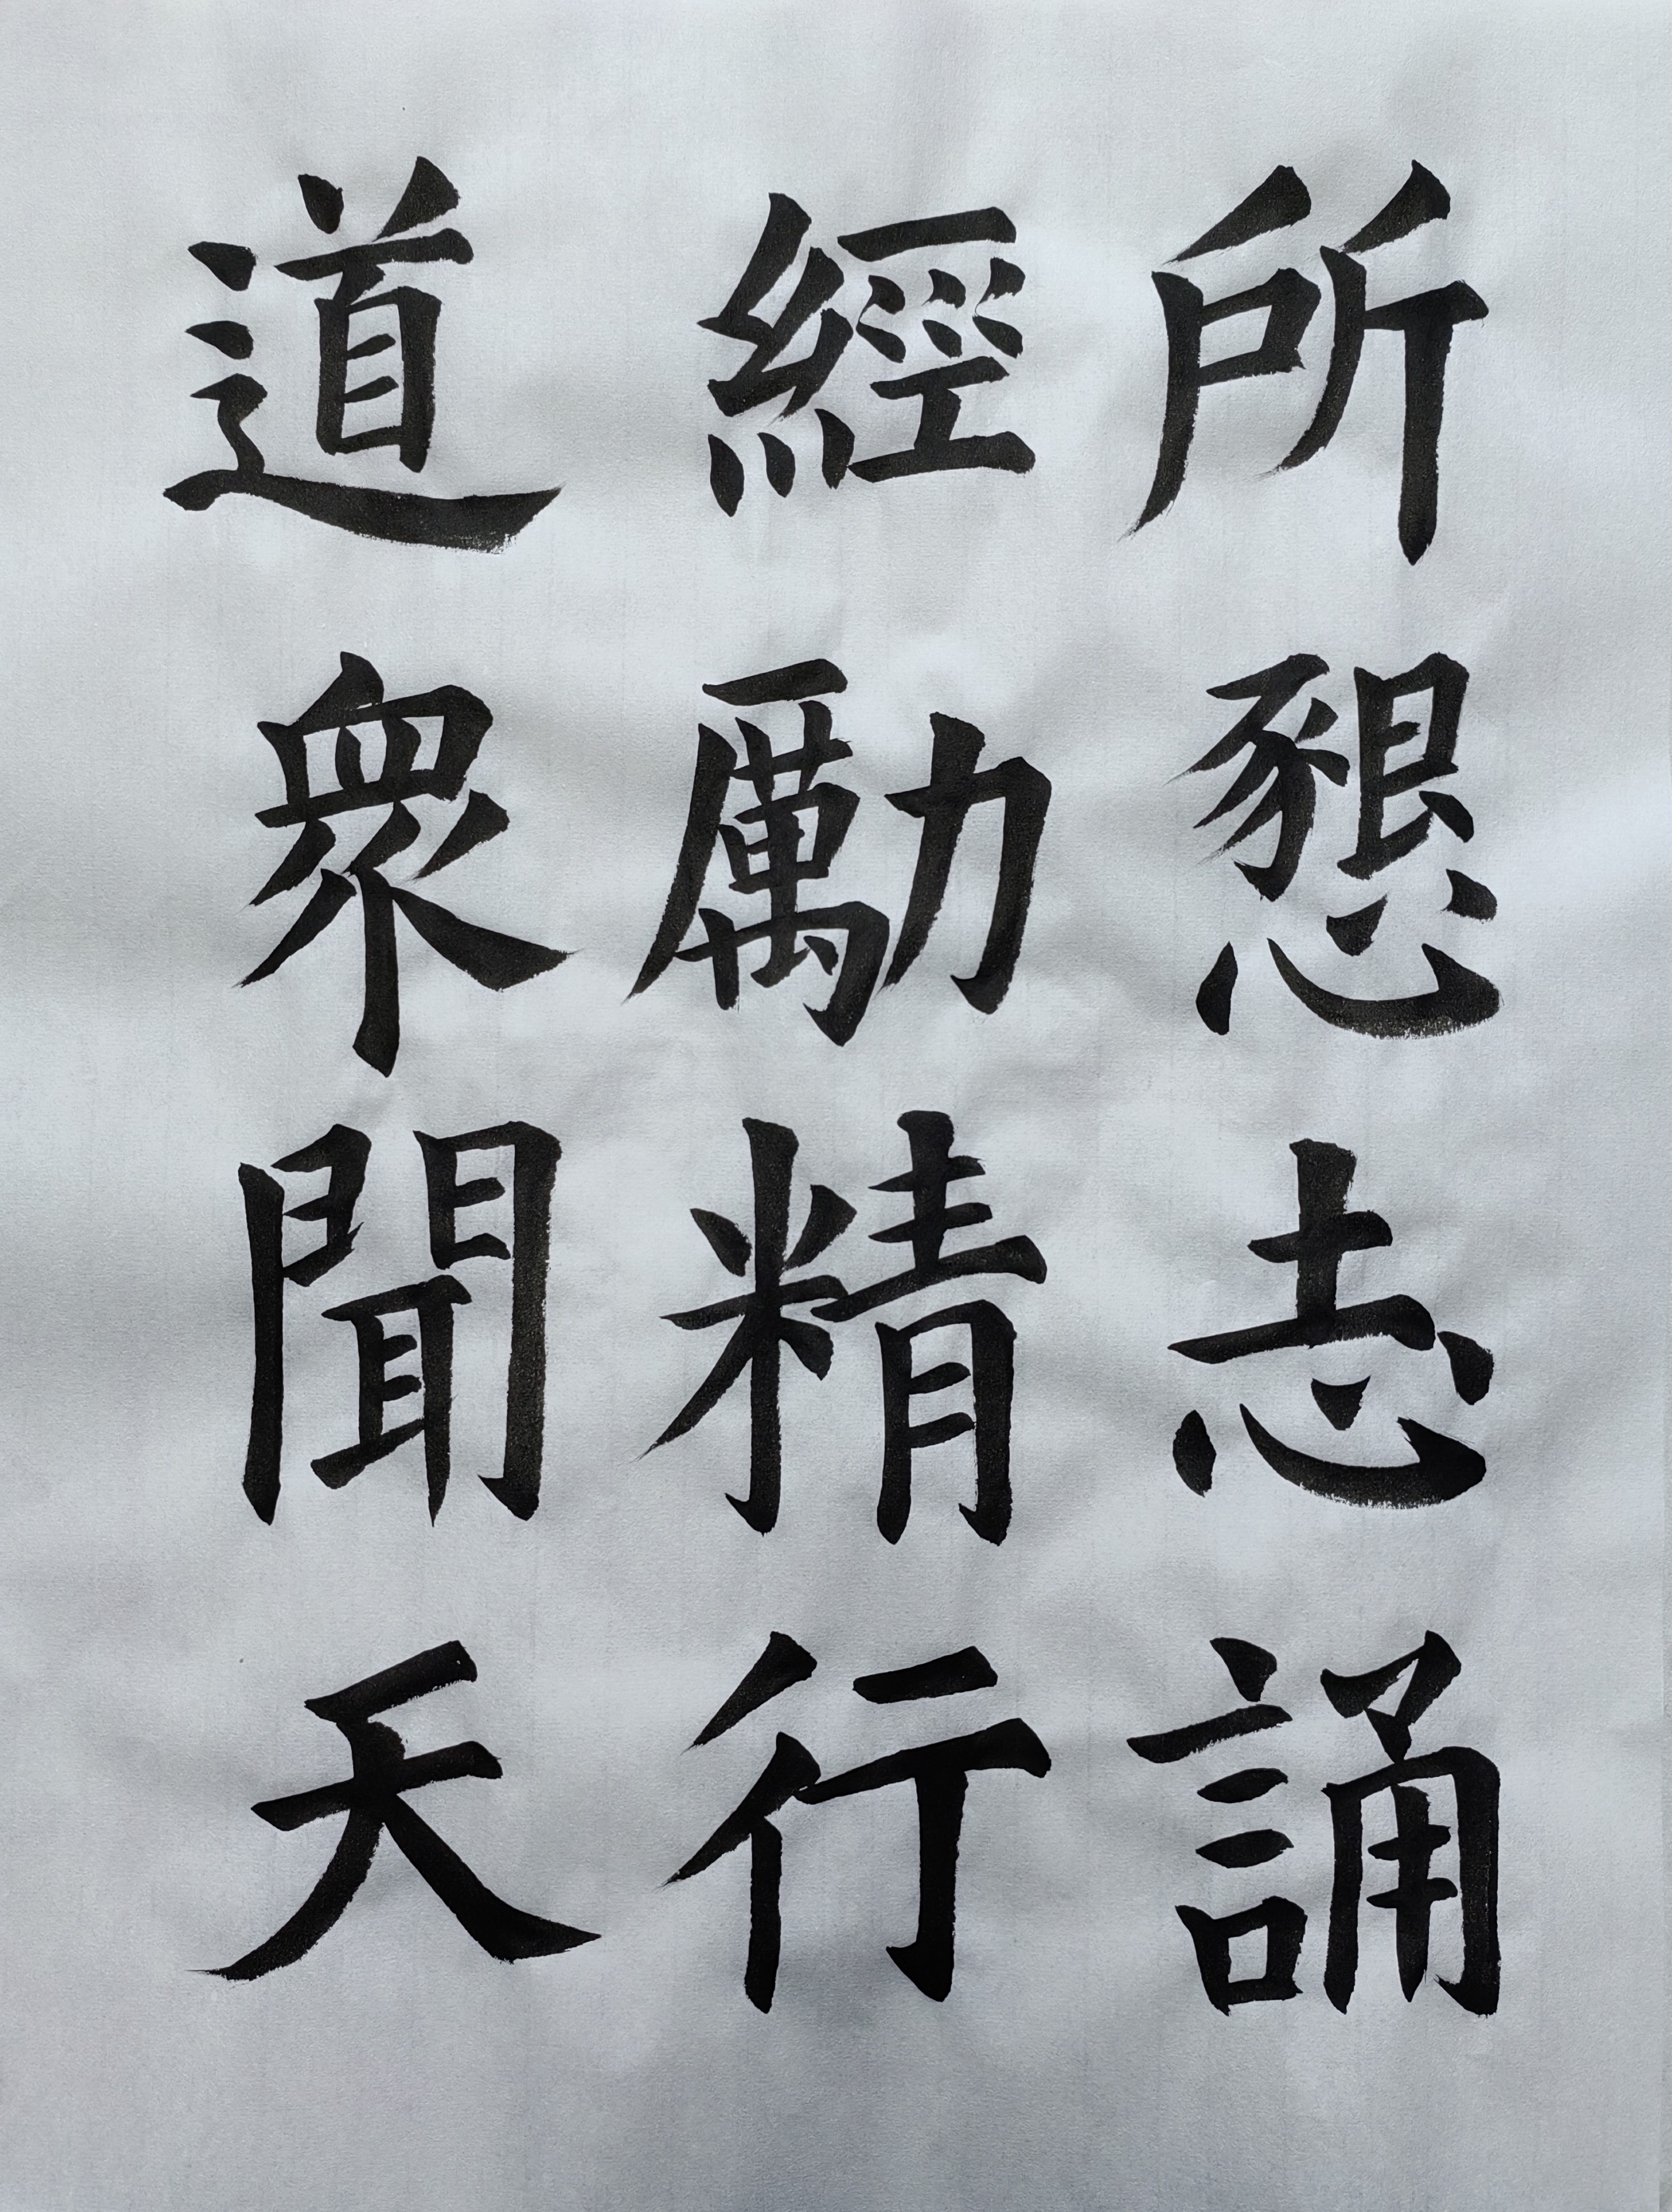 所懇志誦
經勵精行
道衆聞天